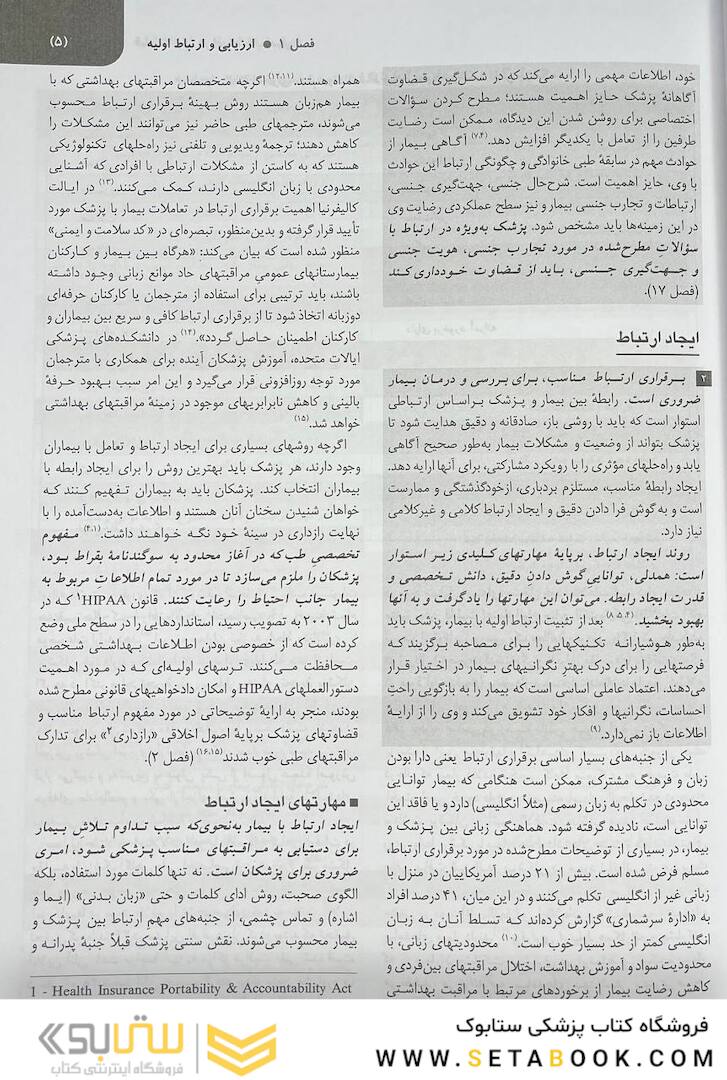 فصل ۱ ● ارزیابی و ارتباط اولیه
(۵)
خود، اطلاعات مهمی را ارایه می‌کند که در شکل‌گیری قضاوت
آگاهانهٔ پزشک حایز اهمیت هستند؛ مطرح کردن سؤالات
اختصاصی برای روشن شدن این دیدگاه، ممکن است رضایت
طرفین را از تعامل با یکدیگر افزایش دهد.(۷،۴) آگاهی بیمار از
حوادث مهم در سابقهٔ طبی خانوادگی و چگونگی ارتباط این حوادث
با وی، حایز اهمیت است. شرح‌حال جنسی، جهت‌گیری جنسی،
ارتباطات و تجارب جنسی بیمار و نیز سطح عملکردی رضایت وی
در این زمینه‌ها باید مشخص شود. پزشک به‌ویژه در ارتباط با
سؤالات مطرح‌شده در مورد تجارب جنسی، هویت جنسی
و جهت‌گیری جنسی، باید از قضاوت خودداری کند
(فصل ۱۷).
ایجاد ارتباط
۲ برقراری ارتباط مناسب، برای بررسی و درمان بیمار
ضروری است. رابطهٔ بین بیمار و پزشک براساس ارتباطی
استوار است که باید با روشی باز، صادقانه و دقیق هدایت شود تا
پزشک بتواند از وضعیت و مشکلات بیمار به‌طور صحیح آگاهی
یابد و راه‌حلهای مؤثری را با رویکرد مشارکتی، برای آنها ارایه دهد.
ایجاد رابطهٔ مناسب، مستلزم بردباری، ازخودگذشتگی و ممارست
است و به‌گوش فرا دادن دقیق و ایجاد ارتباط کلامی و غیرکلامی
نیاز دارد.
روند ایجاد ارتباط، برپایهٔ مهارتهای کلیدی زیر استوار
است: همدلی، توانایی‌گوش دادنِ دقیق، دانش تخصصی و
قدرت ایجاد رابطه. می‌توان این مهارتها را یادگرفت و به آنها
بهبود بخشید.(۸،۵،۴) بعد از تثبیت ارتباط اولیه با بیمار، پزشک باید
به‌طور هوشیارانه تکنیکهایی را برای مصاحبه برگزیند که
فرصتهایی را برای درک بهترِ نگرانیهای بیمار در اختیار قرار
می‌دهند. اعتماد عاملی اساسی است که بیمار را به بازگویی راحتِ
احساسات، نگرانیها و افکار خود تشویق می‌کند و وی را از ارایهٔ
اطلاعات باز نمی‌دارد.(۹)
یکی از جنبه‌های بسیار اساسی برقراری ارتباط یعنی دارا بودن
زبان و فرهنگ مشترک، ممکن است هنگامی که بیمار توانایی
محدودی در تکلم به زبان رسمی (مثلاً انگلیسی) دارد و یا فاقد این
توانایی است، نادیده گرفته شود. هماهنگی زبانی بین پزشک و
بیمار، در بسیاری از توضیحات مطرح‌شده در مورد برقراری ارتباط،
مسلم فرض شده است. بیش از ۲۱ درصد آمریکاییان در منزل با
زبانی غیر از انگلیسی تکلم می‌کنند و در این میان، ۴۱ درصد افراد
به «ادارهٔ سرشماری» گزارش کرده‌اند که تسلط آنان به زبان
انگلیسی کمتر از حد بسیار خوب است.(۱۰) محدودیتهای زبانی، با
محدودیت سواد و آموزش بهداشت، اختلال مراقبتهای بین‌فردی و
کاهش رضایت بیمار از برخوردهای مرتبط با مراقبت بهداشتی
همراه هستند.(۱۲،۱۱) اگرچه متخصصان مراقبتهای بهداشتی که با
بیمار هم‌زبان هستند روش بهینهٔ برقراری ارتباط محسوب
می‌شوند، مترجمهای طبی حاضر نیز می‌توانند این مشکلات را
کاهش دهند؛ ترجمهٔ ویدیویی و تلفنی نیز راه‌حلهای تکنولوژیکی
هستند که به کاستن از مشکلات ارتباطی با افرادی که آشنایی
محدودی با زبان انگلیسی دارند، کمک می‌کنند.(۱۳) در ایالت
کالیفرنیا اهمیت برقراری ارتباط در تعاملات بیمار با پزشک مورد
تأیید قرار گرفته و بدین‌منظور، تبصره‌ای در «کد سلامت و ایمنی»
منظور شده است که بیان می‌کند: «هرگاه بین بیمار و کارکنان
بیمارستانهای عمومیِ مراقبتهای حاد موانع زبانی وجود داشته
باشند، باید ترتیبی برای استفاده از مترجمان یا کارکنان حرفه‌ای
دوزبانه اتخاذ شود تا از برقراری ارتباط کافی و سریع بین بیماران و
کارکنان اطمینان حاصل گردد».(۱۴) در دانشکده‌های پزشکی
ایالات متحده، آموزش پزشکان آینده برای همکاری با مترجمان
مورد توجه روزافزونی قرار می‌گیرد و این امر سبب بهبود حرفهٔ
بالینی و کاهش نابرابریهای موجود در زمینهٔ مراقبتهای بهداشتی
خواهد شد.(۱۵)
اگرچه روشهای بسیاری برای ایجاد ارتباط و تعامل با بیماران
وجود دارند، هر پزشک باید بهترین روش را برای ایجاد رابطه با
بیماران انتخاب کند. پزشکان باید به بیماران تفهیم کنند که
خواهان شنیدن سخنان آنان هستند و اطلاعات به‌دست‌آمده را با
نهایت رازداری در سینهٔ خود نگه خواهند داشت.(۴،۱) مفهوم
تخصصی طب‌که در آغاز محدود به سوگندنامهٔ بقراط بود،
پزشکان را ملزم می‌سازد تا در مورد تمام اطلاعات مربوط به
بیمار جانب احتیاط را رعایت کنند. قانون HIPAA۱ که در
سال ۲۰۰۳ به تصویب رسید، استانداردهایی را در سطح ملی وضع
کرده است که از خصوصی بودن اطلاعات بهداشتی شخصی
محافظت می‌کنند. ترسهای اولیه‌ای که در مورد اهمیت
دستورالعملهای HIPAA و امکان دادخواهیهای قانونی مطرح شده
بودند، منجر به ارایهٔ توضیحاتی در مورد مفهوم ارتباط مناسب و
قضاوتهای پزشک برپایهٔ اصول اخلاقی «رازداری۲» برای تدارک
مراقبتهای طبی خوب شدند(۱۶،۱۵) (فصل ۲).
■ مهارتهای ایجاد ارتباط
ایجاد ارتباط با بیمار به‌نحوی‌که سبب تداوم تلاشِ بیمار
برای دستیابی به مراقبتهای مناسب پزشکی شود، امری
ضروری برای پزشکان است. نه تنها کلمات مورد استفاده، بلکه
الگوی صحبت، روش ادای کلمات و حتی «زبان بدنی» (ایما و
اشاره) و تماس چشمی، از جنبه‌های مهم ارتباط بین پزشک و
بیمار محسوب می‌شوند. نقش سنتی پزشک قبلاً جنبهٔ پدرانه و
1 - Health Insurance Portability & Accountability Act
فروشگاه کتاب پزشکی ستابوک
WWW.SETABOOK.COM
ستابوک
فروشگاه اینترنتی کتاب